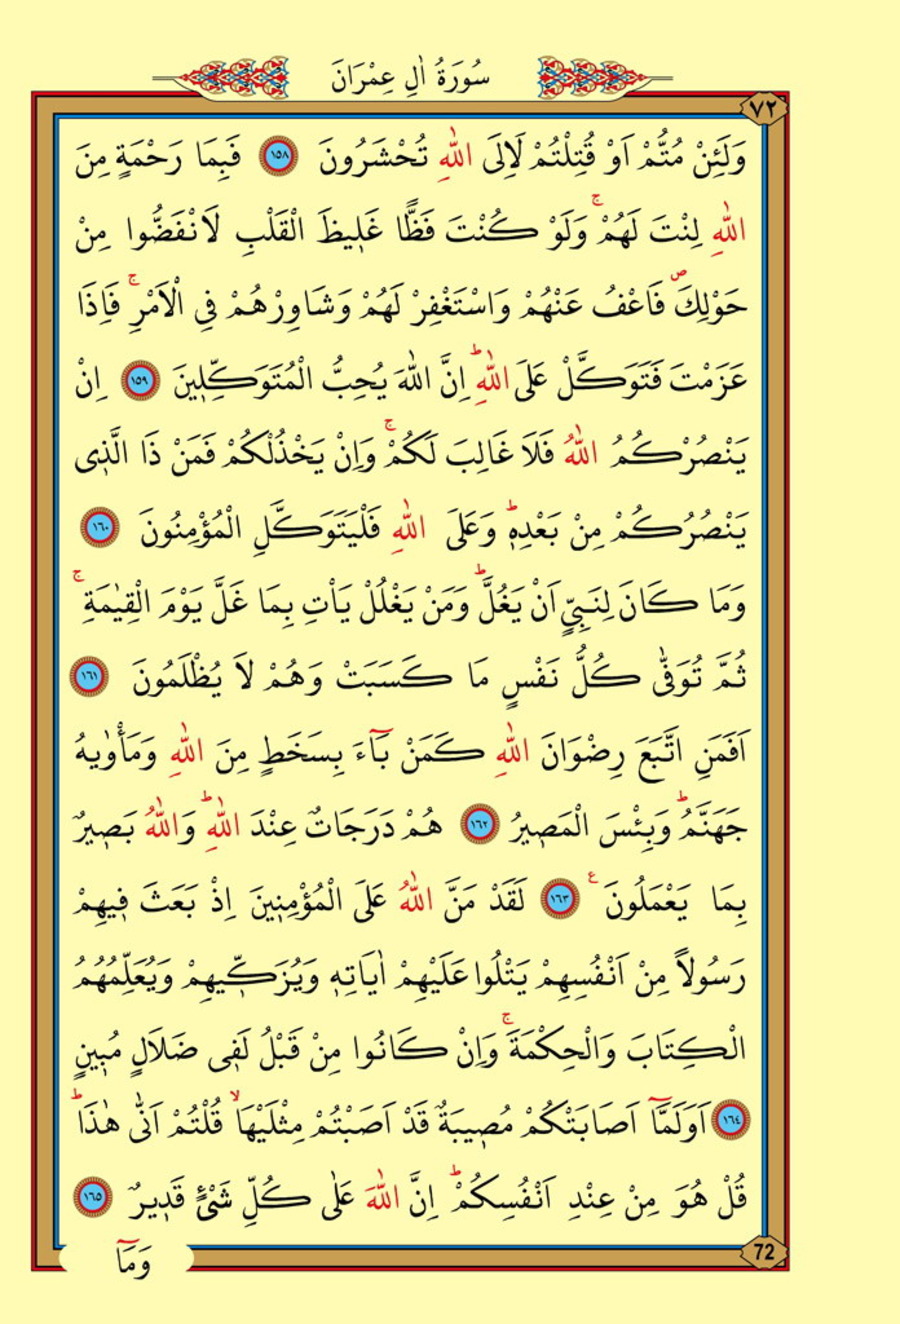 سُورَةُ اٰلِ عِمْرَانَ
٧٢
وَلَئِنْ مُتُّمْ اَوْ قُتِلْتُمْ لَاِلَى اللّٰهِ تُحْشَرُونَ ١٥٨ فَبِمَا رَحْمَةٍ مِنَ
اللّٰهِ لِنْتَ لَهُمْۚ وَلَوْ كُنْتَ فَظًّا غَلٖيظَ الْقَلْبِ لَانْفَضُّوا مِنْ
حَوْلِكَۖ فَاعْفُ عَنْهُمْ وَاسْتَغْفِرْ لَهُمْ وَشَاوِرْهُمْ فِى الْاَمْرِۚ فَاِذَا
عَزَمْتَ فَتَوَكَّلْ عَلَى اللّٰهِؕ اِنَّ اللّٰهَ يُحِبُّ الْمُتَوَكِّلٖينَ ١٥٩ اِنْ
يَنْصُرْكُمُ اللّٰهُ فَلَا غَالِبَ لَكُمْۚ وَاِنْ يَخْذُلْكُمْ فَمَنْ ذَا الَّذٖى
يَنْصُرُكُمْ مِنْ بَعْدِهٖؕ وَعَلَى اللّٰهِ فَلْيَتَوَكَّلِ الْمُؤْمِنُونَ ١٦٠
وَمَا كَانَ لِنَبِىٍّ اَنْ يَغُلَّؕ وَمَنْ يَغْلُلْ يَاْتِ بِمَا غَلَّ يَوْمَ الْقِيٰمَةِۚ
ثُمَّ تُوَفّٰى كُلُّ نَفْسٍ مَا كَسَبَتْ وَهُمْ لَا يُظْلَمُونَ ١٦١
اَفَمَنِ اتَّبَعَ رِضْوَانَ اللّٰهِ كَمَنْ بَٓاءَ بِسَخَطٍ مِنَ اللّٰهِ وَمَأْوٰيهُ
جَهَنَّمُؕ وَبِئْسَ الْمَصٖيرُ ١٦٢ هُمْ دَرَجَاتٌ عِنْدَ اللّٰهِؕ وَاللّٰهُ بَصٖيرٌ
بِمَا يَعْمَلُونَ ع ١٦٣ لَقَدْ مَنَّ اللّٰهُ عَلَى الْمُؤْمِنٖينَ اِذْ بَعَثَ فٖيهِمْ
رَسُولاً مِنْ اَنْفُسِهِمْ يَتْلُوا عَلَيْهِمْ اٰيَاتِهٖ وَيُزَكّٖيهِمْ وَيُعَلِّمُهُمُ
الْكِتَابَ وَالْحِكْمَةَۚ وَاِنْ كَانُوا مِنْ قَبْلُ لَفٖى ضَلَالٍ مُبٖينٍ
١٦٤ اَوَلَمَّٓا اَصَابَتْكُمْ مُصٖيبَةٌ قَدْ اَصَبْتُمْ مِثْلَيْهَاۙ قُلْتُمْ اَنّٰى هٰذَاؕ
قُلْ هُوَ مِنْ عِنْدِ اَنْفُسِكُمْؕ اِنَّ اللّٰهَ عَلٰى كُلِّ شَىْءٍ قَدٖيرٌ ١٦٥
72
وَمَٓا